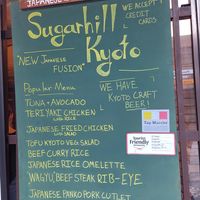 JAPANESE
WE ACCEPT
CREDIT
CARDS
Sugarhill
Kyoto
"NEW Japanese
FUSION"
Popular Menu
TUNA + AVOCADO
TERIYAKI CHICKEN
with RICE
JAPANESE FRIED CHICKEN
with SALAD
TOFU KYOTO VEG. SALAD
BEEF CURRY RICE
JAPANESE RICE OMELETTE
WAGYU, BEEF STEAK RIB-EYE
JAPANESE PANKO PORK CUTLET
WE HAVE
KYOTO CRAFT
BEER!
Tap Marché
Friendly